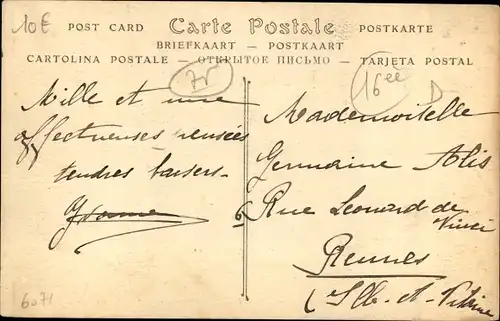 10€
POST CARD Carte Postale POSTKARTE
BRIEFKAART — POSTKAART
CARTOLINA POSTALE — ОТКРЫТОЕ ПИСЬМО — TARJETA POSTAL
16ee
D
Mille et une
affectueuses pensées
tendres baisers.
Yvonne
Mademoiselle
Germaine Alis
6 Rue Léonard de
Vinci
Rennes
(Ille-et-Vilaine
6071